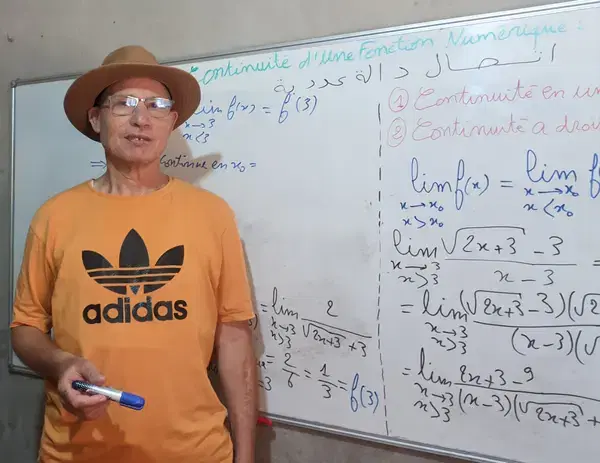 Continuité d'une Fonction Numérique :
اتصال دالة عددية
lim f(x) = f(3)
x→3
x<3
⇒ Continue en x₀ =
① Continuité en un
② Continuité a droi
lim f(x) = lim f
x→x₀ x→x₀
x>x₀ x<x₀
lim √2x+3 - 3 / x - 3 =
x→3
x>3
= lim (√2x+3 - 3)(√2 / (x-3)(√
x→3
x>3
= lim 2x+3 - 9 / (x-3)(√2x+3 +
x→3
x>3
= lim 2 / √2x+3 + 3
x→3
x>3
= 2/6 = 1/3 = f(3)
adidas